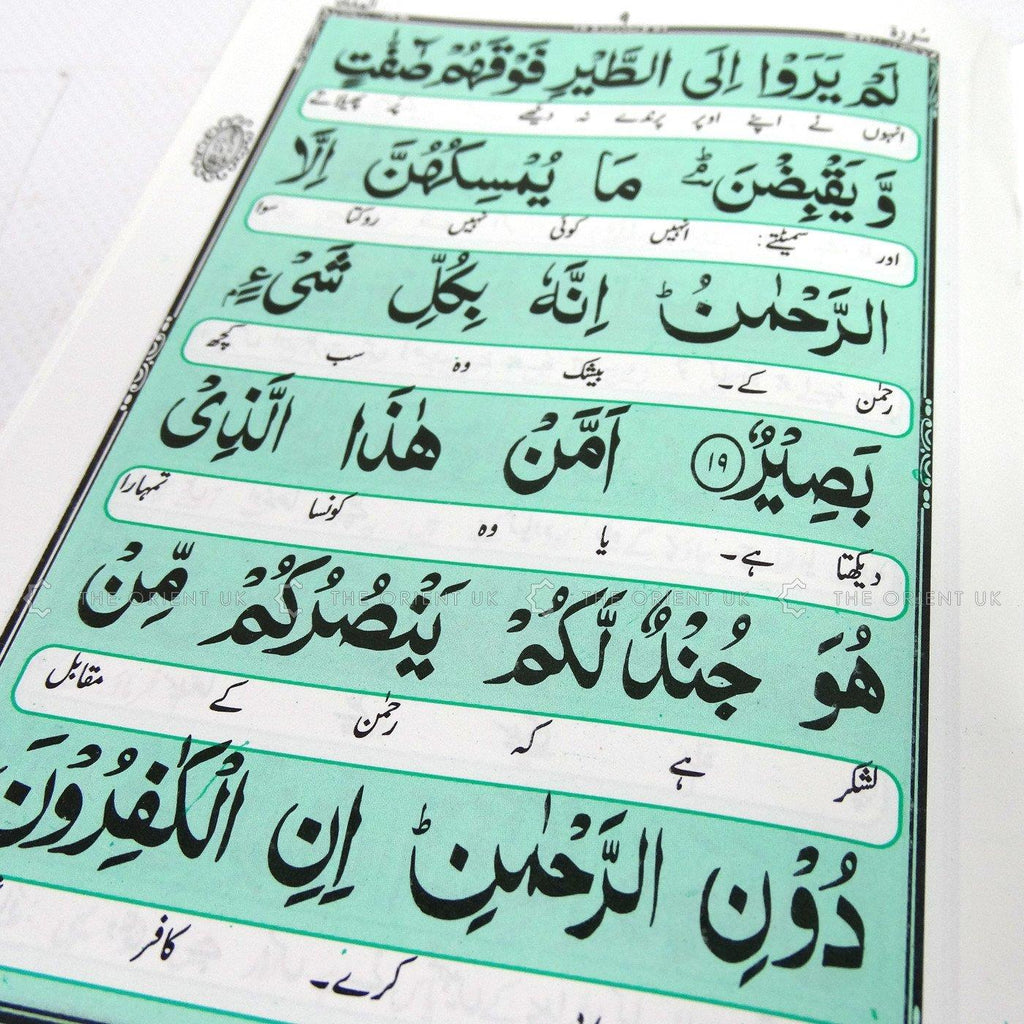 ٩
سُورَة
لَمْ يَرَوْا اِلَى الطَّيْرِ فَوْقَهُمْ صٰٓفّٰتٍ
انہوں نے اپنے اوپر پرندے نہ دیکھے پر پھیلاتے
وَّ يَقْبِضْنَ ؔۘ مَا يُمْسِكُهُنَّ اِلَّا
اور سمیٹتے: انہیں کوئی نہیں روکتا سوا
الرَّحْمٰنُ ؕ اِنَّهٗ بِكُلِّ شَیْءٍۭ
رحمٰن کے۔ بیشک وہ سب کچھ
بَصِيْرٌ ١٩ اَمَّنْ هٰذَا الَّذِیْ
دیکھتا ہے۔ یا وہ کونسا تمہارا
هُوَ جُنْدٌ لَّكُمْ يَنْصُرُكُمْ مِّنْ
لشکر ہے کہ رحمٰن کے مقابل
دُوْنِ الرَّحْمٰنِ ؕ اِنِ الْكٰفِرُوْنَ
کرے۔ کافر
THE ORIENT UK THE ORIENT UK THE ORIENT UK